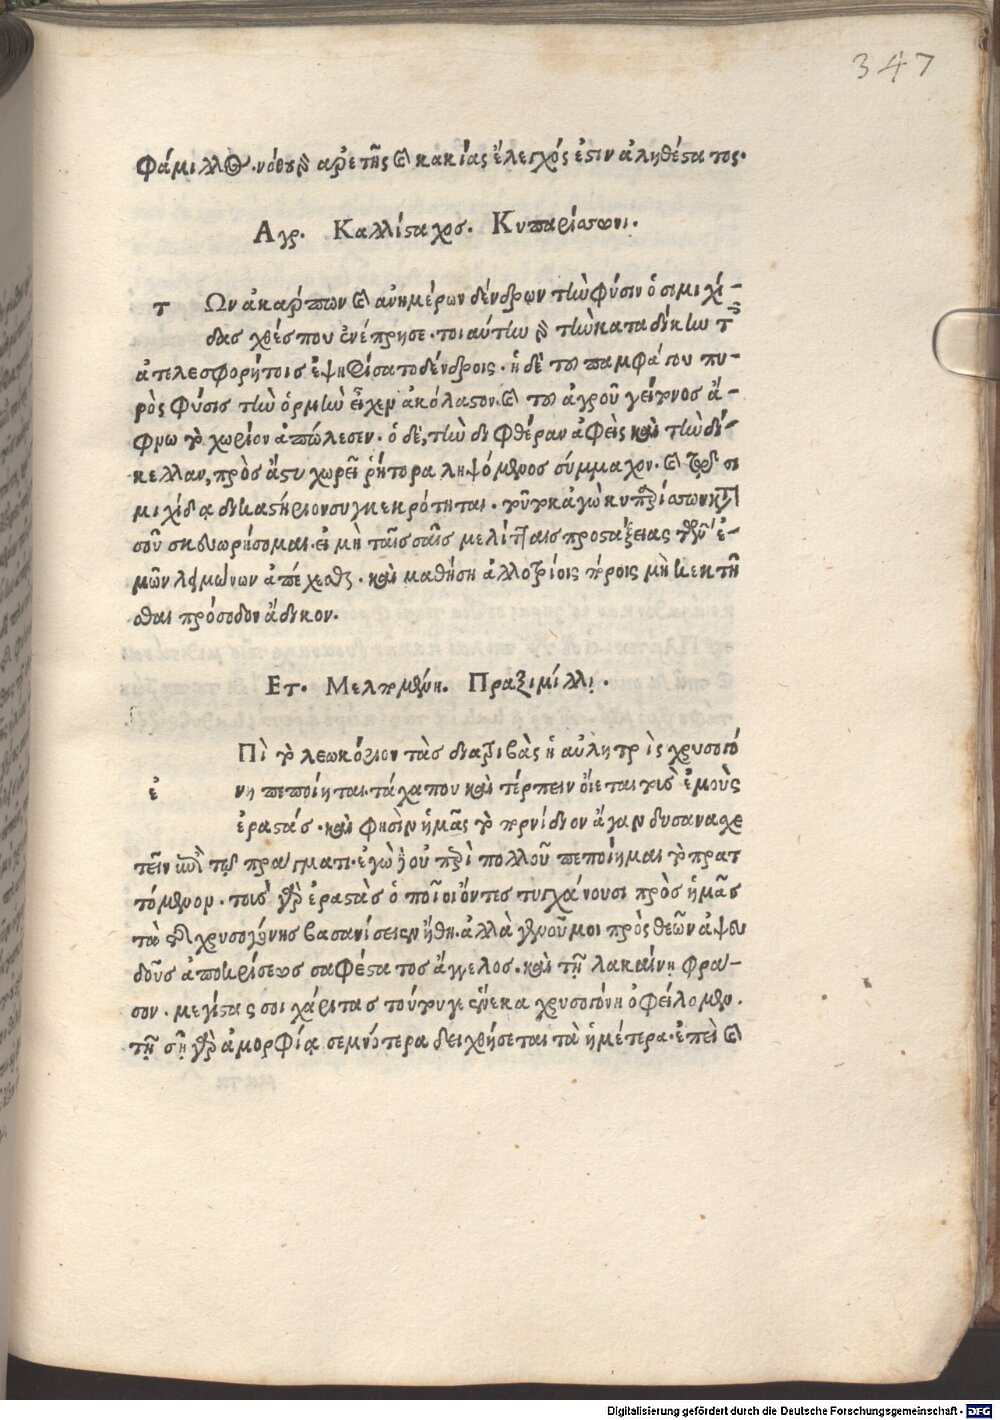 347
φάμιλλος. νόθου δὲ ἀρετῆς καὶ κακίας ἔλεγχός ἐστιν ἀληθέστατος.
Αγρ. Καλλίσταχος. Κυπαρίσσωνι.
τ Ων ἀκάρπων καὶ ἀνημέρων δένδρων τὴν φύσιν ὁ σιμιχί-
δας χθές που ἐνέπρησε. τοιαύτην δὲ τὴν καταδίκην τοῖς
ἀτελεσφορήτοις ἐψηφίσατο δένδροις. ἡ δὲ τοῦ παμφάγου πυ-
ρὸς φύσις τὴν ὁρμὴν εἶχεν ἀκόλαστον. καὶ τοῦ ἀγροῦ γείτνος ἄ-
φνω τὸ χωρίον ἀπώλεσεν. ὁ δὲ, τὴν διφθέραν ἀφεὶς καὶ τὴν δί-
κελλαν, πρὸς ἄστυ χωρεῖ ῥήτορα ληψόμενος σύμμαχον. καὶ σι
μιχίδᾳ δικαστήριον συγκεκρότηται. τοῦτο κἀγὼ κυπαρίσσων κατὰ
σοῦ σκευωρήσομαι. εἰ μὴ ταῖς σαῖς μελίτταις προστάξειας τῶν ἐ-
μῶν λειμώνων ἀπέχεσθαι. καὶ μαθήση ἀλλοτρίοις πόνοις μὴ κεκτῆ
σθαι πρόσοδον ἄδικον.
Ετ. Μελπομένη. Πραξιμίλλῃ.
ἐ Πὶ τὸ λεωκόριον τὰς διατριβὰς ἡ αὐλητρὶς χρυσογό
νη πεποίηται. τάχα που καὶ τέρπειν οἴεται τοὺς ἐμοὺς
ἐραστάς. καὶ φησὶν ἡμᾶς τὸ πορνίδιον ἄγαν δυσανασχε
τεῖν ἐπὶ τῷ πράγματι. ἐγὼ δὲ οὐ περὶ πολλοῦ πεποίημαι τὸ πρατ
τόμενον. τοὺς γὰρ ἐραστὰς ὁποῖοι ὄντες τυγχάνουσι πρὸς ἡμᾶς
τὰ τῆς χρυσογόνης βασανίσειεν ἤθη. ἀλλὰ γενοῦ μοι πρὸς θεῶν ἀψευ
δοῦς ἀποκρίσεως σαφέστατος ἄγγελος. καὶ τῇ λακαίνῃ φρά-
σον. μεγίστας σοι χάριτας τούτου γε ἕνεκα χρυσογόνη ὀφείλομεν.
τῇ σῇ γὰρ ἀμορφίᾳ σεμνότερα δειχθήσεται τὰ ἡμέτερα. ἐπεὶ καὶ
Digitalisierung gefördert durch die Deutsche Forschungsgemeinschaft - DFG